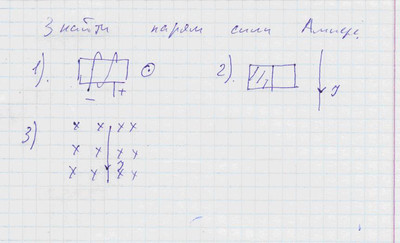 Знайти напрям сили Ампера
1).
2).
- +
I
3)
x x x x
x x x x
x x x x